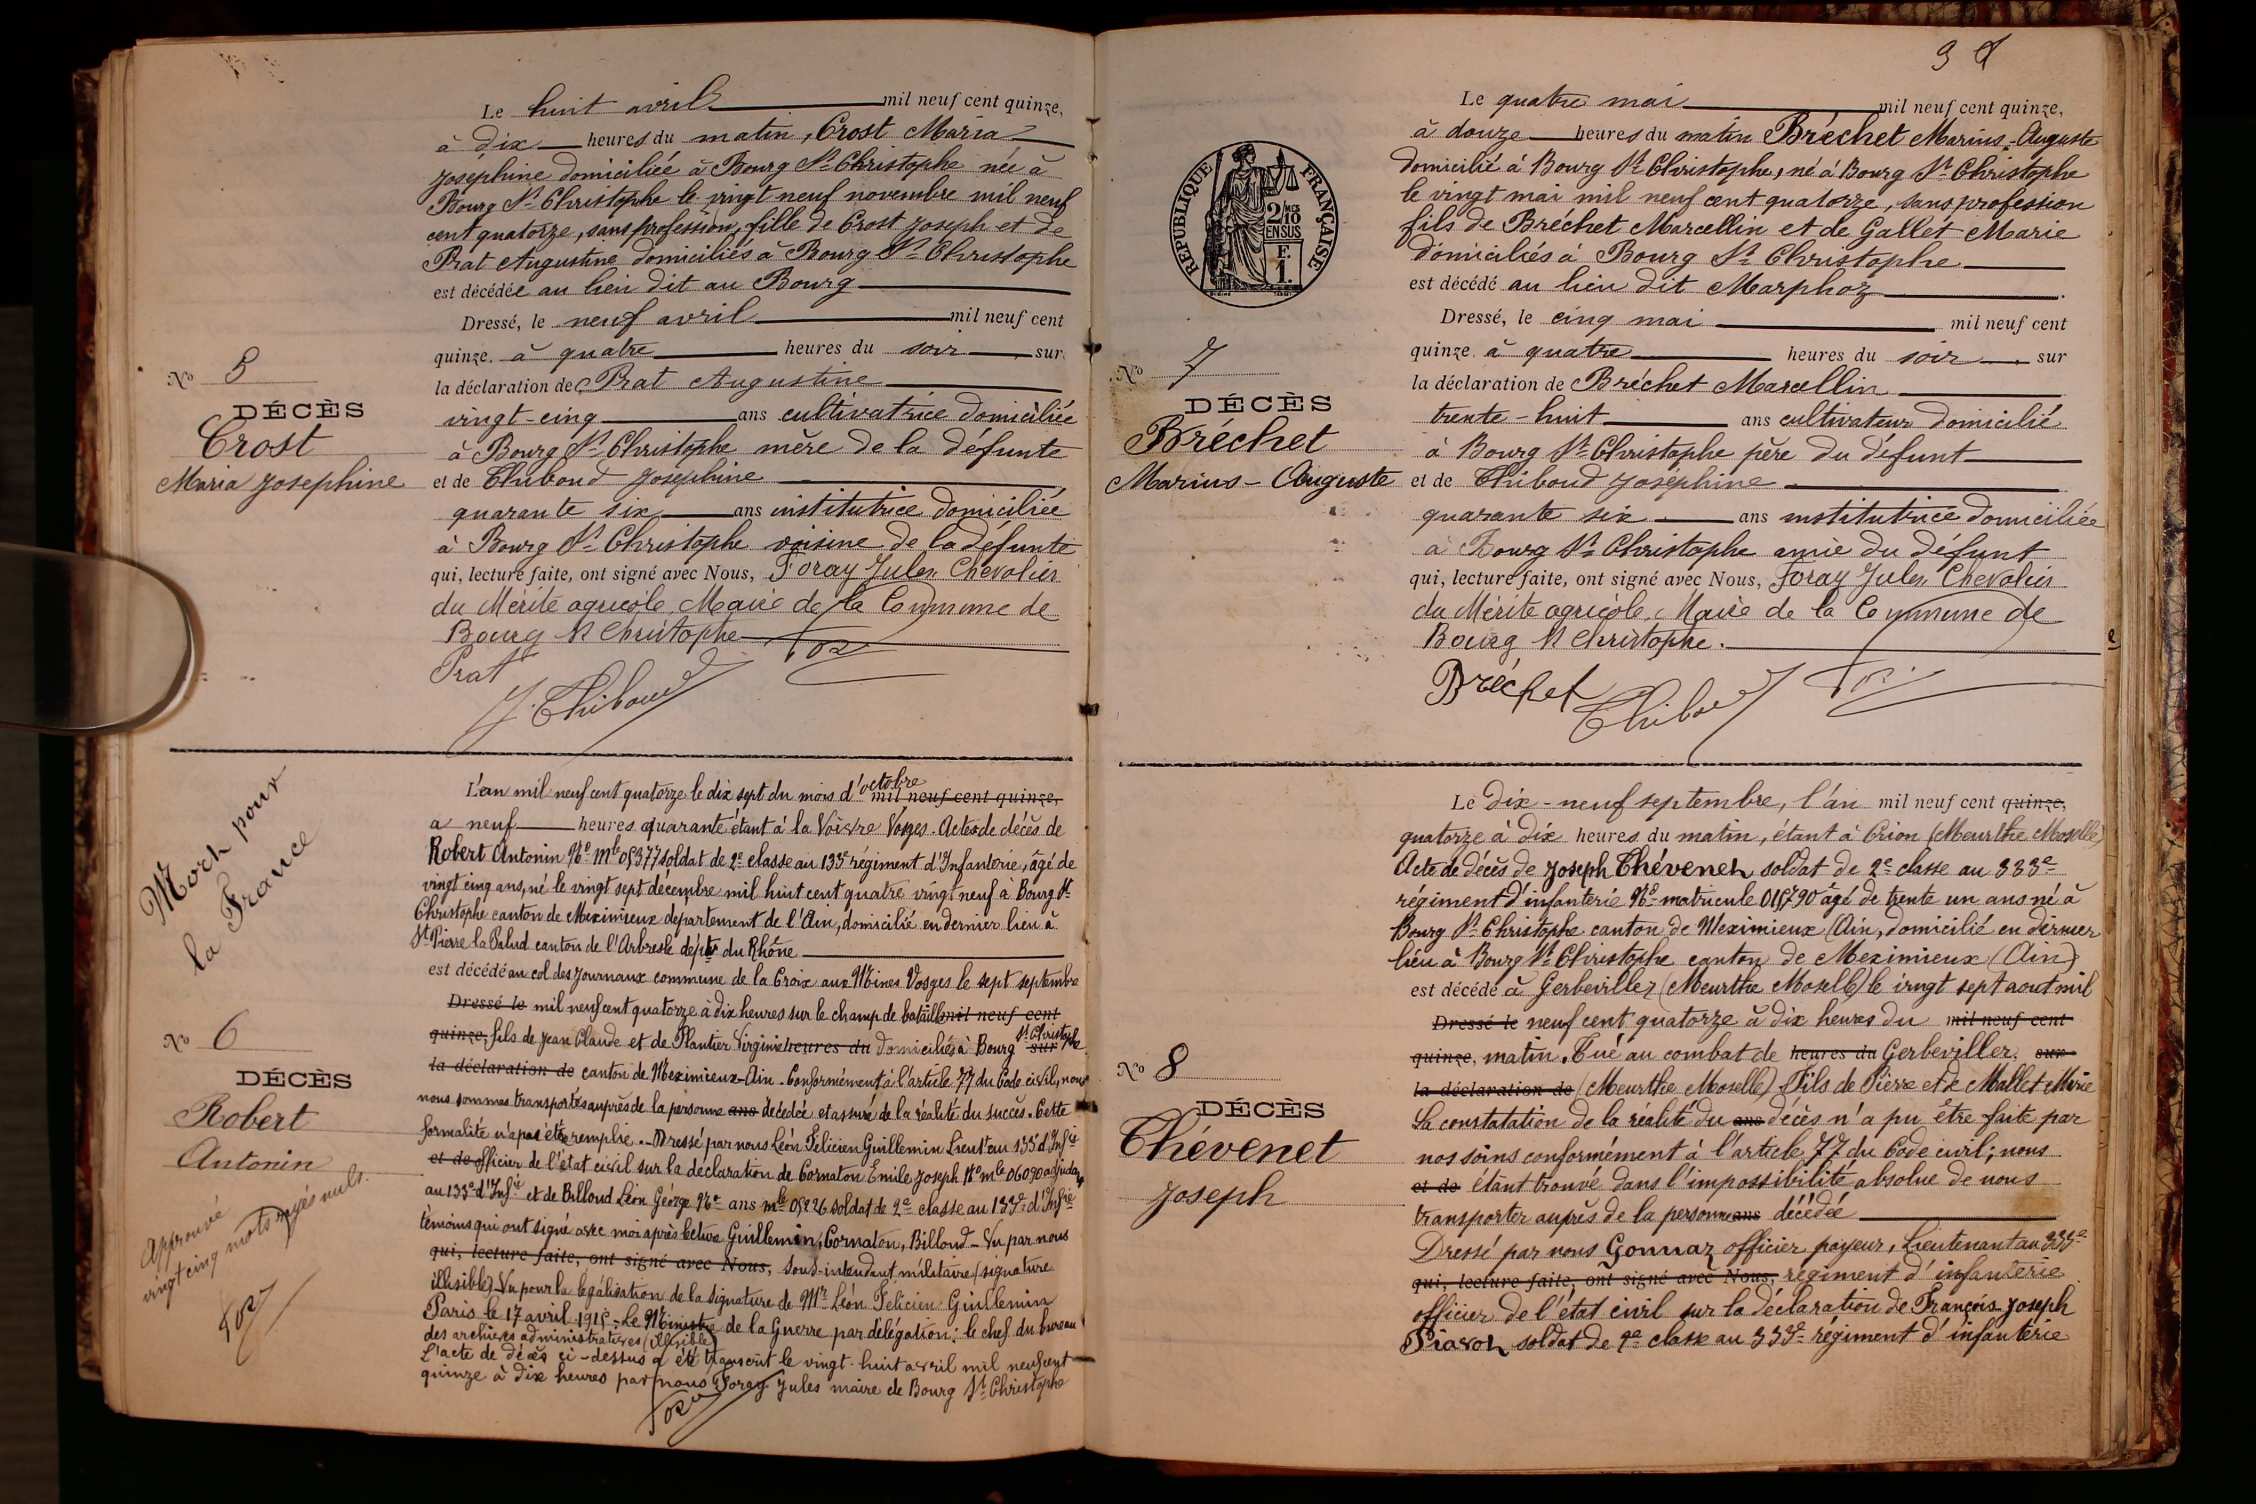 Le huit avril mil neuf cent quinze,
à dix heures du matin, Crost Maria
Joséphine domiciliée à Bourg St Christophe née à
Bourg St Christophe le vingt neuf novembre mil neuf
cent quatorze, sans profession, fille de Crost Joseph et de
Prat Augustine domiciliés à Bourg St Christophe
est décédée au lieu dit au Bourg
Dressé, le neuf avril mil neuf cent
quinze, à quatre heures du soir, sur
la déclaration de Prat Augustine
vingt-cinq ans cultivatrice domiciliée
à Bourg St Christophe mère de la défunte
et de Thiboud Joséphine
quarante six ans institutrice domiciliée
à Bourg St Christophe voisine de la défunte
qui, lecture faite, ont signé avec Nous, Foray Jules Chevalier
du Mérite agricole, Maire de la Commune de
Bourg St Christophe
Prat
J. Thiboud
No 5
DÉCÈS
Crost
Maria Josephine
L'an mil neuf cent quatorze le dix sept du mois d'octobre
mil neuf cent quinze,
a neuf heures quarante étant à la Voivre Vosges. Acte de décès de
Robert Antonin No Mle 05377 soldat de 2e classe au 133e régiment d'Infanterie, âgé de
vingt cinq ans, né le vingt sept décembre mil huit cent quatre vingt neuf à Bourg St
Christophe canton de Meximieux departement de l'Ain, domicilié en dernier lieu à
St Pierre la Palud canton de l'Arbresle dépt du Rhône
est décédé au col des Journaux commune de la Croix aux Mines Vosges le sept septembre
Dressé le mil neuf cent quatorze à dix heures sur le champ de bataille mil neuf cent
quinze, fils de Jean Claude et de Plantier Virginie heures du domiciliés à Bourg St Christophe sur
la déclaration de canton de Meximieux-Ain. Conformément à l'article 77 du Code civil, nous
nous sommes transportés auprès de la personne ans décédée et assuré de la réalité du succès. Cette
formalité n'a pas été remplie. Dressé par nous Léon Félicien Guillemin Lieut au 133e d'Infie
et de officier de l'état civil sur la déclaration de Cornaton Emile Joseph No mle 06090 adjudant
au 133e d'Infie et de Billoud Léon George No ans mle 05226 soldat de 2e classe au 133e d'Infie
témoins qui ont signé avec moi après lecture Guillemin, Cornaton, Billoud - Vu par nous
qui, lecture faite, ont signé avec Nous, sous-intendant militaire (signature
illisible) Vu pour la légalisation de la signature de Mr Léon Félicien Guillemin
Paris le 17 avril 1915. Le Ministre de la Guerre par délégation; le chef du bureau
des archives administratives (illisible)
L'acte de décès ci-dessus a été transcrit le vingt-huit avril mil neuf cent
quinze à dix heures par nous Foray Jules maire de Bourg St Christophe
Foray
Mort pour
la France
No 6
DÉCÈS
Robert
Antonin
Approuvé
vingt cinq mots rayés nuls.
Foray
9
RÉPUBLIQUE FRANÇAISE
2/10
EN SUS
F.
1.
Le quatre mai mil neuf cent quinze,
à douze heures du matin Bréchet Marius-Auguste
domicilié à Bourg St Christophe, né à Bourg St Christophe
le vingt mai mil neuf cent quatorze, sans profession
fils de Bréchet Marcellin et de Gallet Marie
domiciliés à Bourg St Christophe
est décédé au lieu dit Marphoz
Dressé, le cinq mai mil neuf cent
quinze, à quatre heures du soir sur
la déclaration de Bréchet Marcellin
trente-huit ans cultivateur domicilié
à Bourg St Christophe père du défunt
et de Thiboud Joséphine
quarante six ans institutrice domiciliée
à Bourg St Christophe amie du défunt
qui, lecture faite, ont signé avec Nous, Foray Jules Chevalier
du Mérite agricole, Maire de la Commune de
Bourg St Christophe.
Bréchet
Thiboud
No 7
DÉCÈS
Bréchet
Marius-Auguste
Le dix-neuf septembre, l'an mil neuf cent quinze,
quatorze à dix heures du matin, étant à Crion (Meurthe Moselle)
Acte de décès de Joseph Thévenet soldat de 2e classe au 333e
régiment d'infanterie No matricule âgé de trente un ans né à
Bourg St Christophe canton de Meximieux (Ain, domicilié en dernier
lieu à Bourg St Christophe canton de Meximieux (Ain)
est décédé à Gerbeviller (Meurthe Moselle) le vingt sept aout mil
Dressé le neuf cent quatorze à dix heures du mil neuf cent
quinze, matin. Tué au combat de heures du Gerbeviller, sur
la déclaration de (Meurthe Moselle) Fils de Pierre et de Mallet Marie
La constatation de la réalité du ans décès n'a pu être faite par
nos soins conformément à l'article 77 du Code civil; nous
et de étant trouvé dans l'impossibilité absolue de nous
transporter auprès de la personne ans décédée
Dressé par nous Gonnaz officier payeur, Lieutenant au 333e
qui, lecture faite, ont signé avec Nous, régiment d'infanterie
officier de l'état civil sur la déclaration de François-Joseph
Piaron soldat de 2e classe au 333e régiment d'infanterie
No 8
DÉCÈS
Thévenet
Joseph